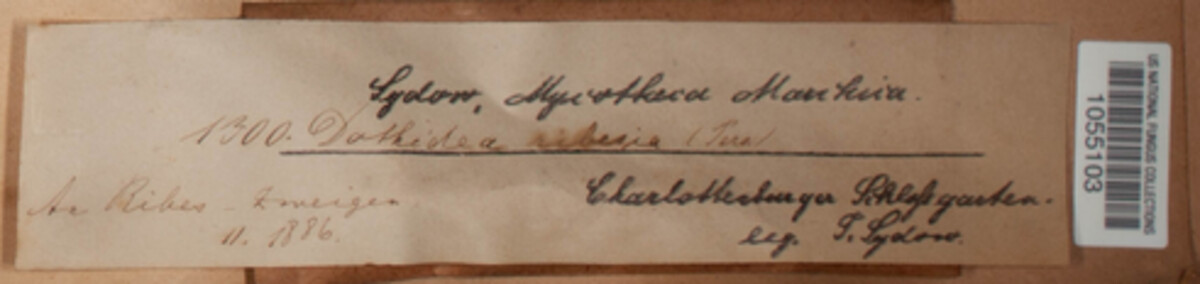 Sydow, Mycotheca Marchica.
1300. Dothidea ribesia (Pers)
An Ribes - Zweigen
11. 1886.
Charlottenburger Schloßgarten.
leg. P. Sydow.
US NATIONAL FUNGUS COLLECTIONS
1055103